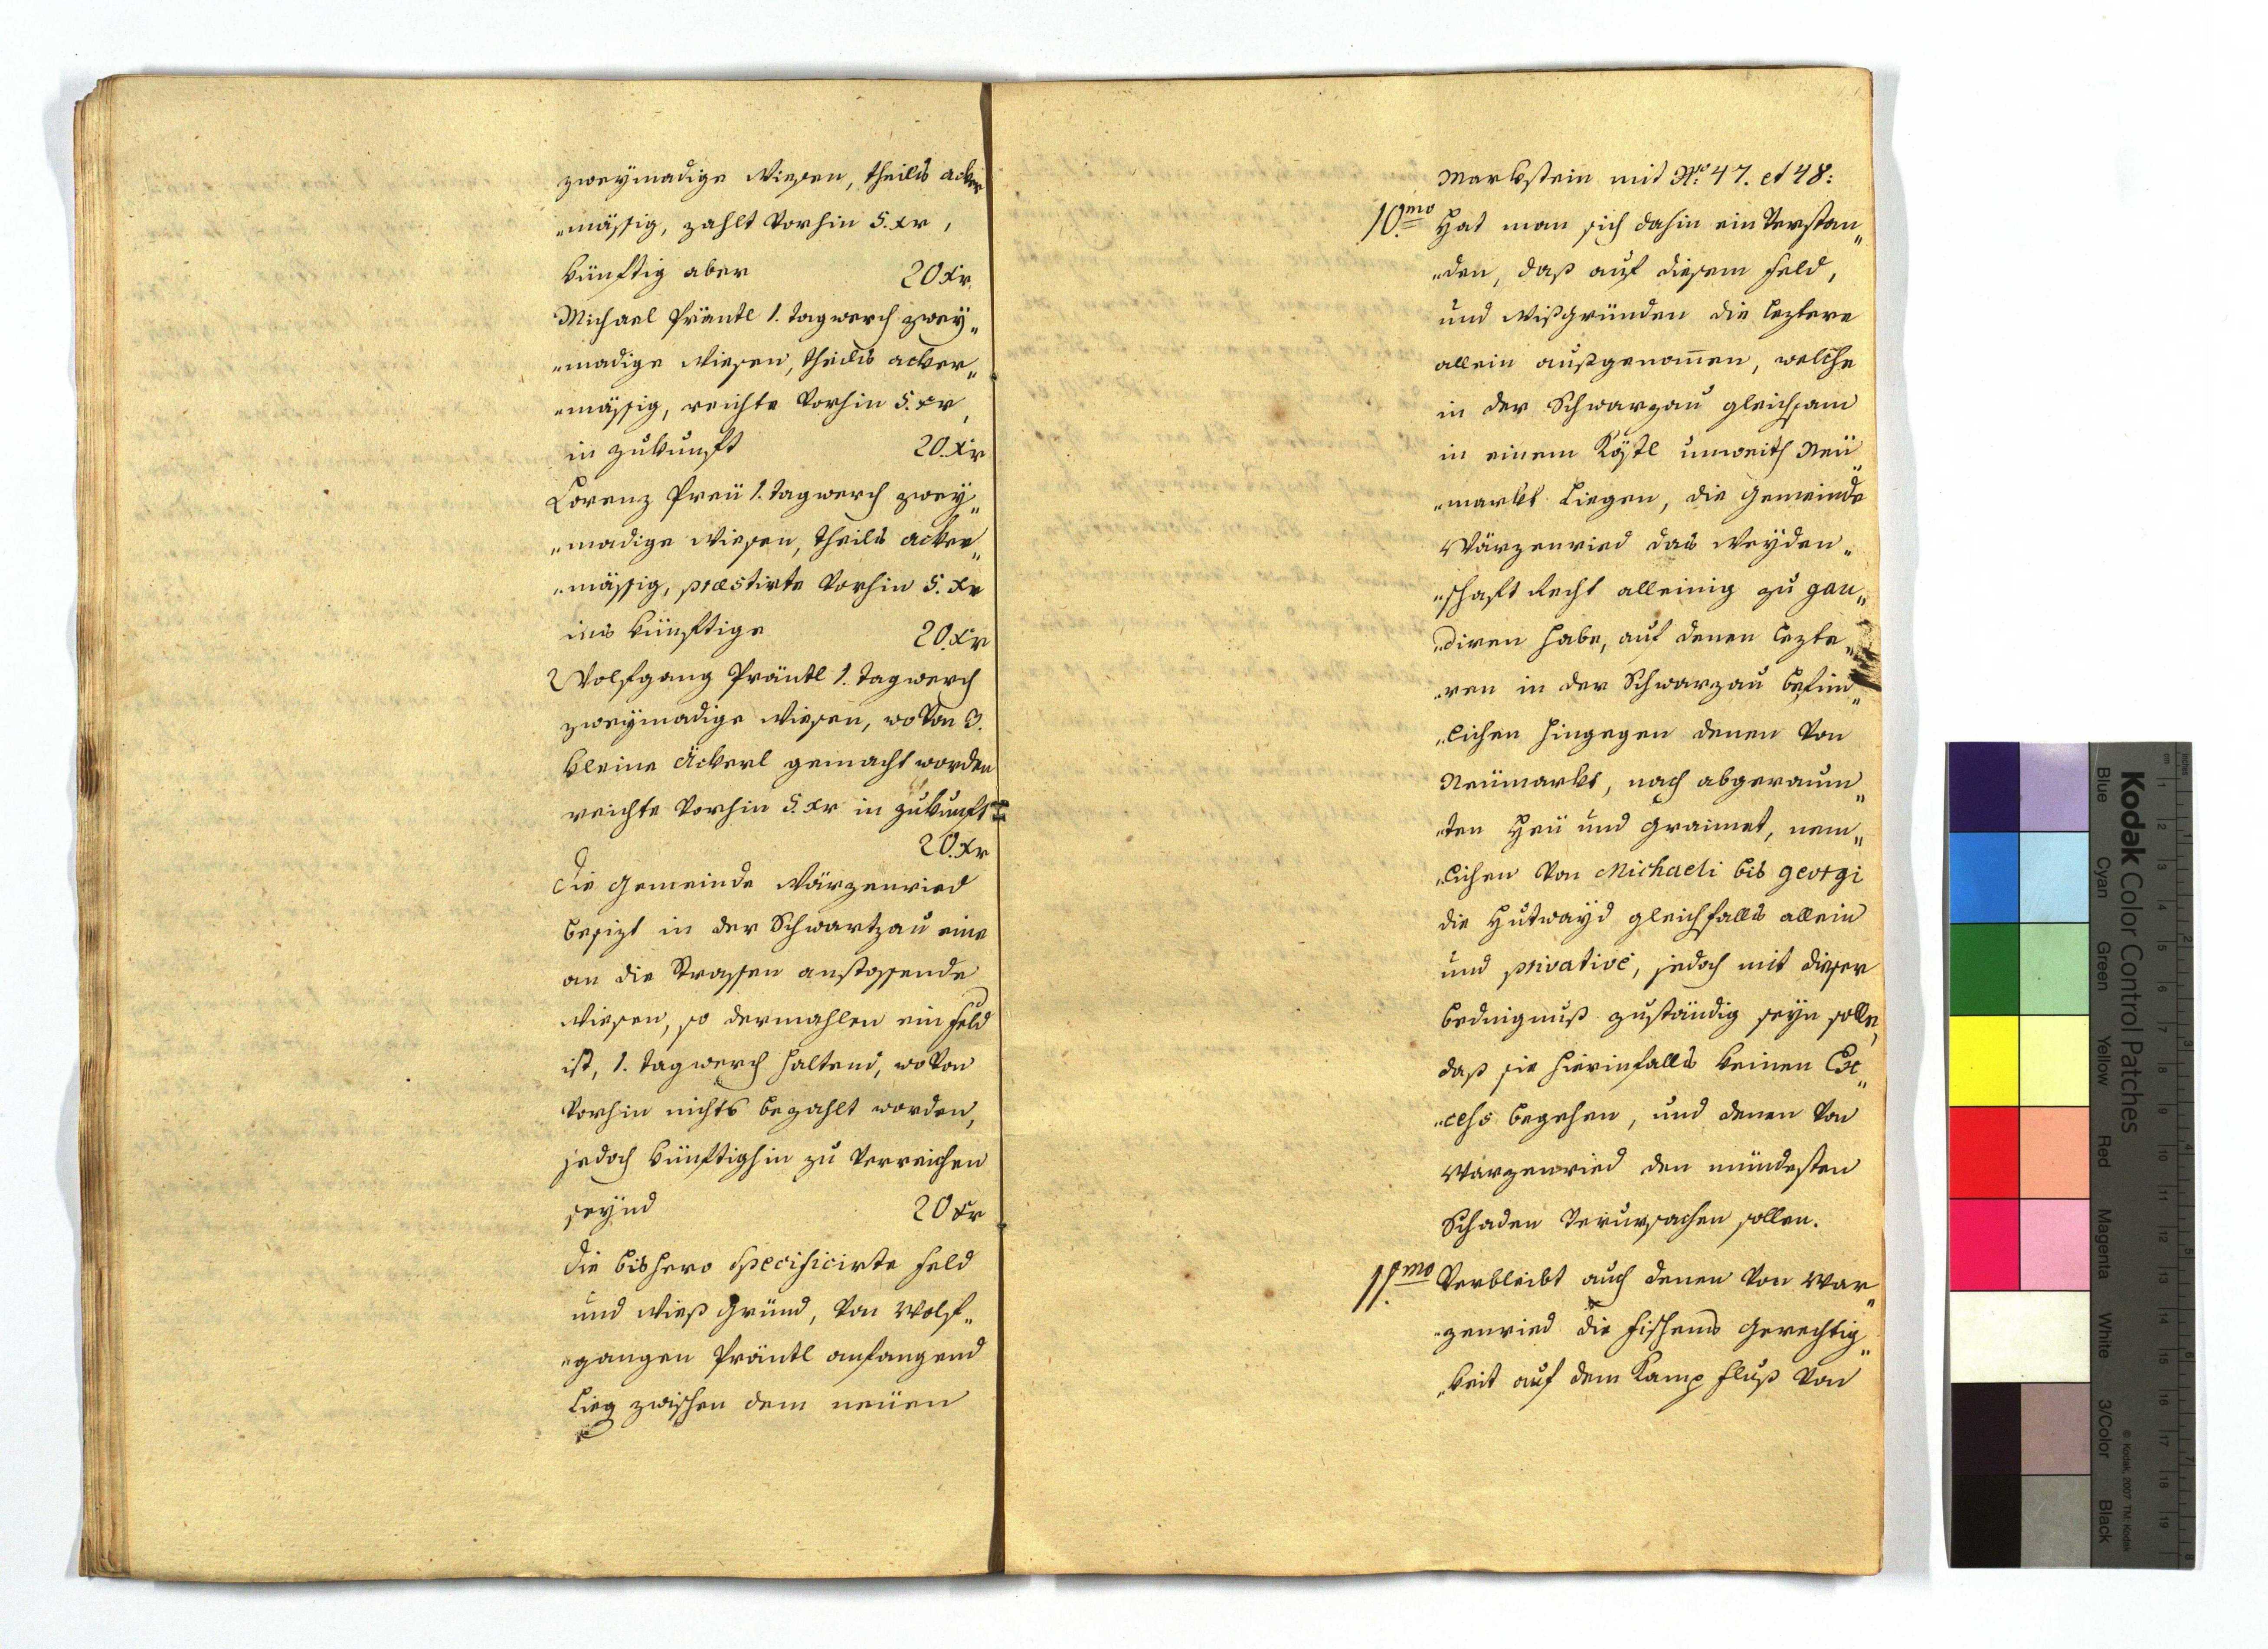 zweymadige Wiesen, theils acker
„mässig, zahlt vorhin 5. xr,
künftig aber 20 xr.
Michael Präntl 1. tagwerch zwey„
„madige Wiesen, theils acker„
„mässig, reichte vorhin 5. xr,
in zukunft 20. xr
Lorenz Preü 1. tagwerch zwey„
„madige Wiesen, theils acker„
„mässig, præstirte vorhin 5. xr
ins künftige 20. xr
Wolfgang Präntl 1. tagwerch
zweymadige Wiesen, wovon 3.
kleine Äckerl gemacht worden
reichte vorhin 5. xr in zukunft
20. xr
die Gemeinde Wärzenried
besizt in der Schwartzau eine
an die Strassen anstossende
Wiesen, so dermahlen ein feld
ist, 1. tagwerch haltend, wovon
vorhin nichts bezahlt worden,
jedoch künftighin zu verreichen
seynd 20 xr
die bishero specificirte feld
und Wieß Gründ, von Wolf„
„gangen Präntl anfangend
lieg zwischen dem neüen
Markstein mit No: 47. et 48:
10mo Hat man sich dahin ein verstan„
„den, daß auf diesem feld,
und Wißgründen die leztere
allein außgenom̄en, welche
in der Schwarzau gleichsam
in einem Köstl unweith Neü„
„markt liegen, die Gemeinde
Wärzenried das Weyden„
„schaft Recht alleinig zu gau„
„diren habe, auf denen lezte„
„ren in der Schwarzau befind„
„lichen hingegen denen von
Neümarkt, nach abgeraum„
„ten Heü und Graimet, nem„
„lichen von Michaeli bis georgi
die Hutwayd gleichfalls allein
und privativè, jedoch mit dieser
bedingnuß zuständig seyn solle,
daß sie hierinfalls keinen Ex„
„cess begehen, und denen von
Warzenried den mündesten
Schaden verursachen sollen.
11mo Verbleibt auch denen von War„
„zenried die fischens Gerechtig„
„keit auf dem Kamp fluß von
Kodak Color Control Patches
Blue Cyan Green Yellow Red Magenta White 3/Color Black
© Kodak, 2007 TM: Kodak